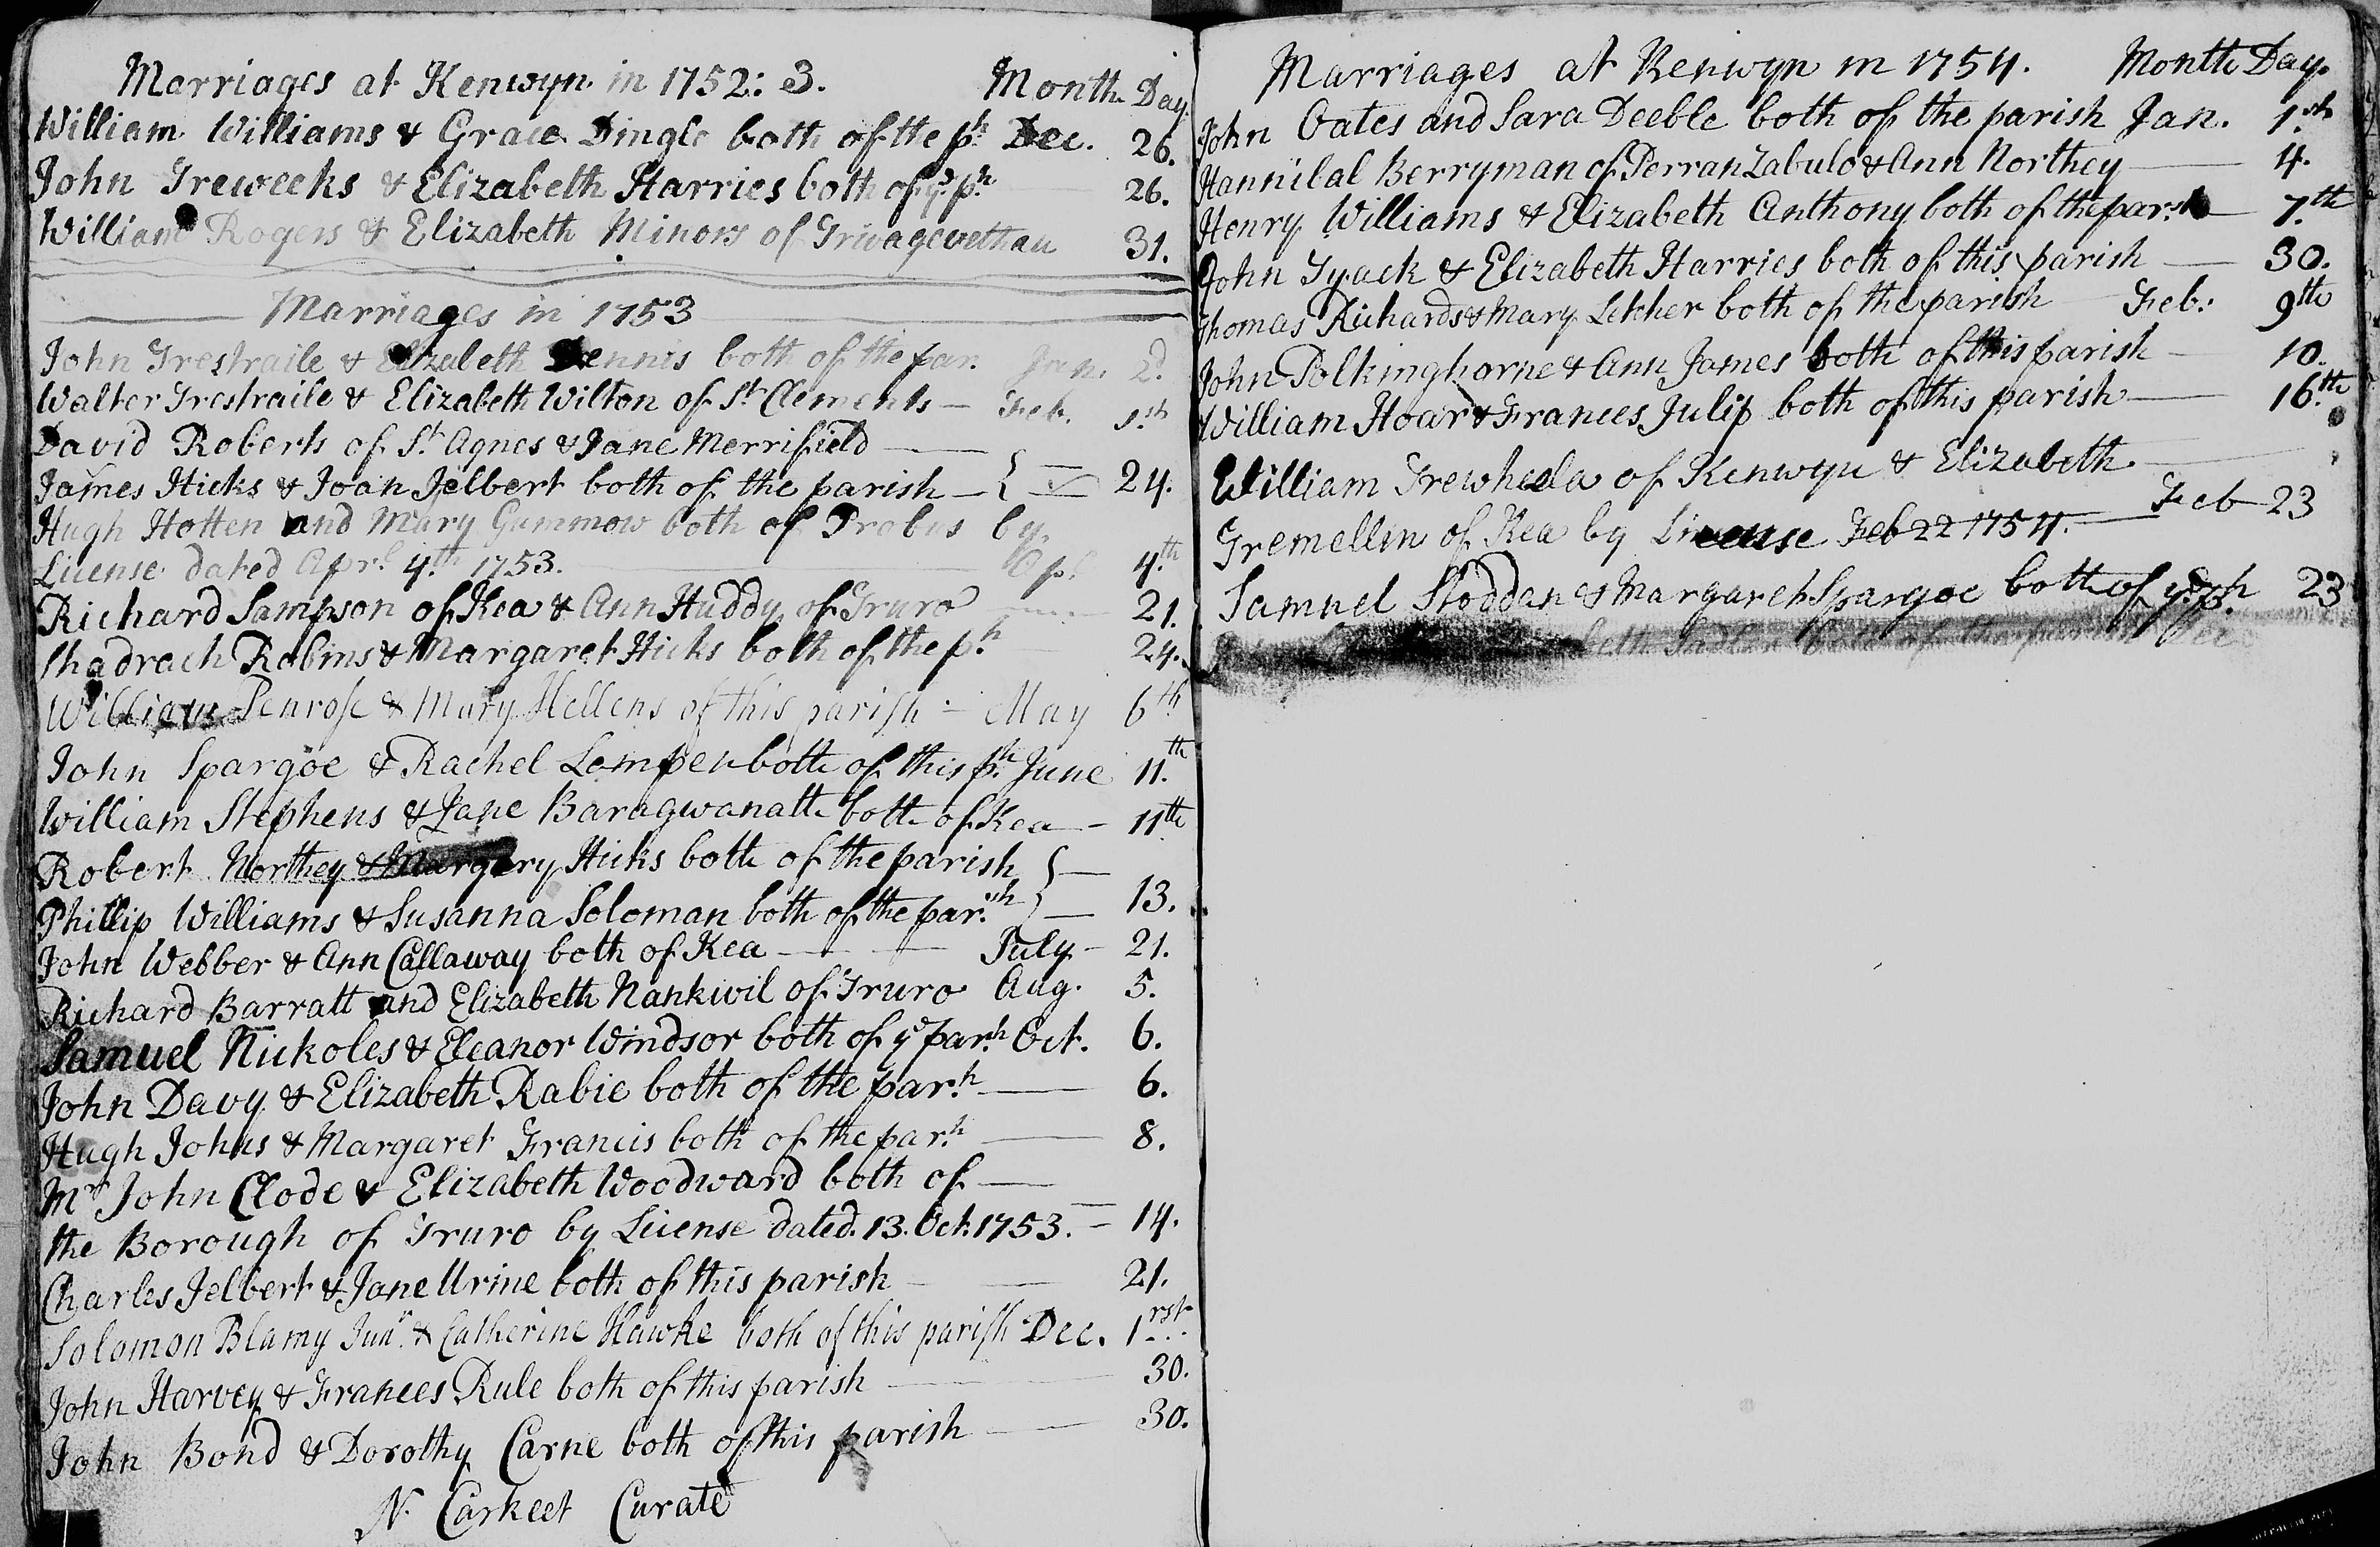 Marriages at Kenwyn in 1752: 3. Month Day
William Williams & Grace Dingle both of the ph Dec. 26.
John Treweeks & Elizabeth Harries both of ye ph 26.
William Rogers & Elizabeth Minors of 31.
Marriages in 1753
John Trestraile & Elizabeth Dennis both of the par. Jan. 2d.
Walter Trestraile & Elizabeth Wilton of St Clements — Feb. 1st
David Roberts of St Agnes & Jane Merrifield —
James Hicks & Joan Jelbert both of the parish — 24.
Hugh Hotten and Mary Gummow both of Probus by
License dated Aprl 4th 1753. Apl 4th
Richard Sampson of Kea & Ann Huddy of Truro 21.
Shadrach Robins & Margaret Hicks both of the ph 24.
William Penrose & Mary Hellens of this parish - May 6th
John Spargoe & Rachel Lemper both of this ph June 11th
William Stephens & Jane Baragwanath both of Kea — 11th
Robert Northey & Margery Hicks both of the parish —
Phillip Williams & Susanna Soloman both of the parish — 13.
John Webber & Ann Callaway both of Kea — July — 21.
Richard Barratt and Elizabeth Nankivil of Truro Aug. 5.
Samuel Nickoles & Eleanor Windsor both of ye parh Oct. 6.
John Davy & Elizabeth Rabie both of the parh — 6.
Hugh Johns & Margaret Francis both of the parh — 8.
Mr John Clode & Elizabeth Woodward both of —
the Borough of Truro by License dated. 13. Oct. 1753. — 14.
Charles Jelbert & Jane Urine both of this parish — 21.
Solomon Blamy Junr. & Catherine Hawke both of this parish Dec. 1rst
John Harvey & Frances Rule both of this parish — 30.
John Bond & Dorothy Carne both of this parish — 30.
N. Carkeet Curate
Marriages at Kenwyn in 1754. Month Day
John Oates and Sara Deeble both of the parish Jan. 1st
Hannilal Berryman of Perran Zabulo & Ann Northey — 4.
Henry Williams & Elizabeth Anthony both of the parsh — 7.th
John Tyack & Elizabeth Harries both of this parish — 30.
Thomas Richards & Mary both of the parish Feb: 9th
John Polkinghorne & Ann James both of this parish — 10.
William Hoar & Frances Julip both of this parish — 16.th
William Trewheela of Kenwyn & Elizabeth —
Tremellen of Kea by License Feb 22 1754. — Feb 23
Samuel Stoddan & Margaret Spargoe both of ye ph 23